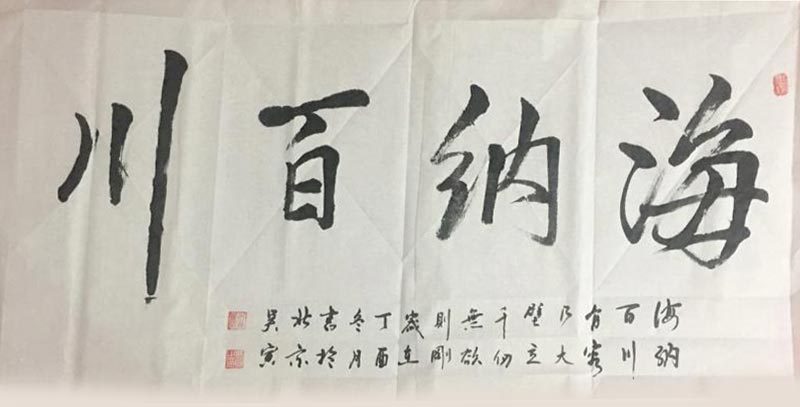 海納百川
海納
百川
有容
乃大
壁立
千仞
無欲
則剛
歲在
丁酉
冬月
書於
北京
吳寅